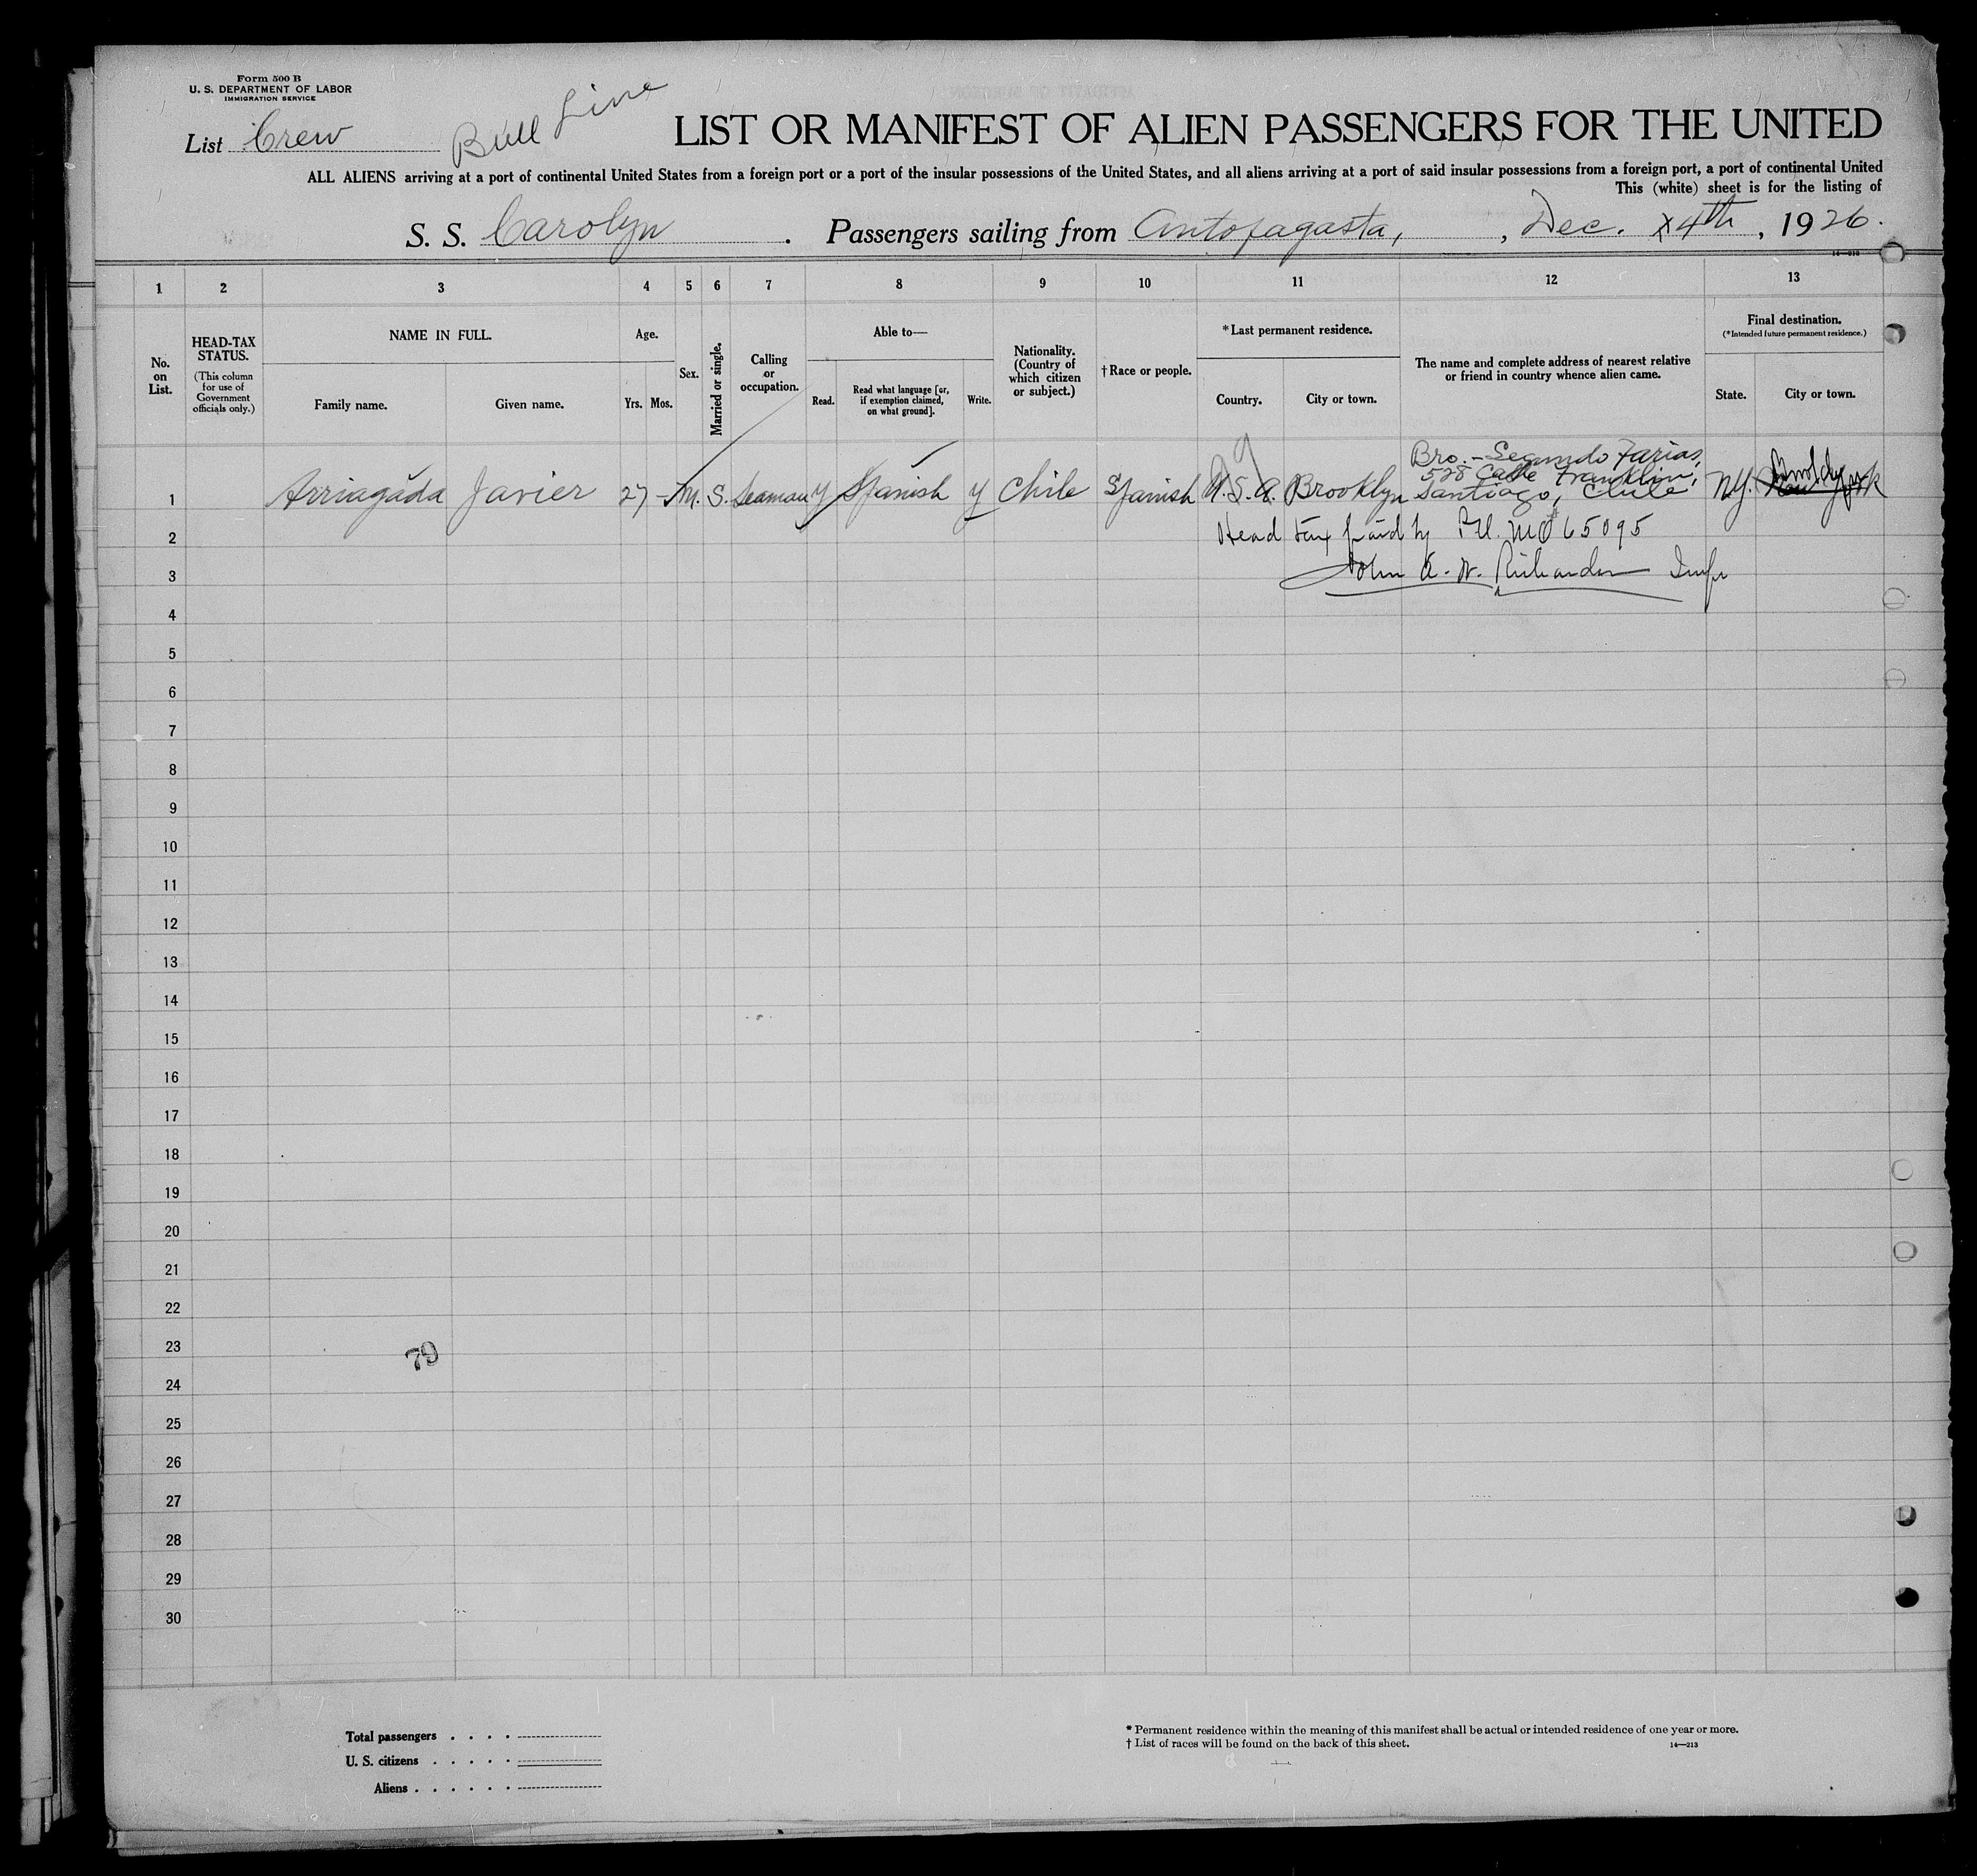 Form 500 B
U. S. DEPARTMENT OF LABOR
IMMIGRATION SERVICE
List Crew
Bull Line
LIST OR MANIFEST OF ALIEN PASSENGERS FOR THE UNITED
ALL ALIENS arriving at a port of continental United States from a foreign port or a port of the insular possessions of the United States, and all aliens arriving at a port of said insular possessions from a foreign port, a port of continental United
This (white) sheet is for the listing of
S. S. Carolyn . Passengers sailing from Antofagasta, , Dec. 4th , 1926.
1 2 3 4 5 6 7 8 9 10 11 12 13
No. on List.
HEAD-TAX STATUS.
(This column for use of Government officials only.)
NAME IN FULL.
Family name. Given name.
Age.
Yrs. Mos.
Sex.
Married or single.
Calling or occupation.
Able to—
Read. Read what language [or, if exemption claimed, on what ground]. Write.
Nationality. (Country of which citizen or subject.)
† Race or people.
* Last permanent residence.
Country. City or town.
The name and complete address of nearest relative or friend in country whence alien came.
Final destination.
(* Intended future permanent residence.)
State. City or town.
Bro. - Segundo Farias,
528 Calle Franklin,
1 Arriagada Javier 27 - M. S. Seaman y Spanish y Chile Spanish U.S.A. Brooklyn Santiago, Chile NY. New York
2 Head tax paid by MO 65095
3 John A. W. Richardson Insp
4
5
6
7
8
9
10
11
12
13
14
15
16
17
18
19
20
21
22
23
79
24
25
26
27
28
29
30
Total passengers
U. S. citizens
Aliens
* Permanent residence within the meaning of this manifest shall be actual or intended residence of one year or more.
† List of races will be found on the back of this sheet.
14—213